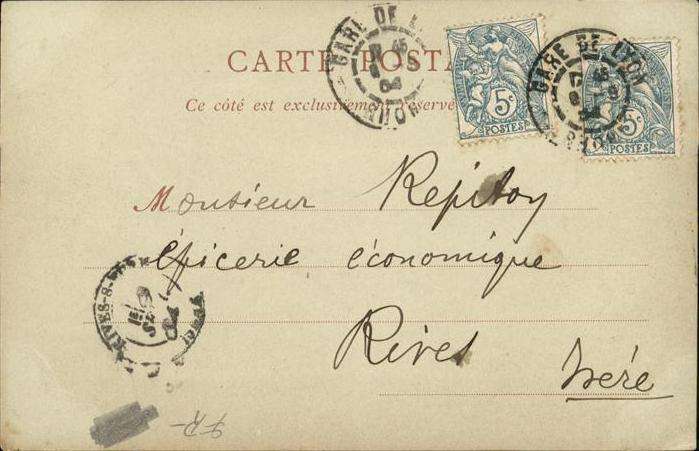 CARTE POSTA
Ce côté est exclusivement réservé
GARE DE LYON
RHONE
5c
POSTES
GARE DE LYON
RHONE
04
5c
POSTES
Monsieur Repitoy
épicerie économique
Rives
Isère
RIVES-S-
FR-